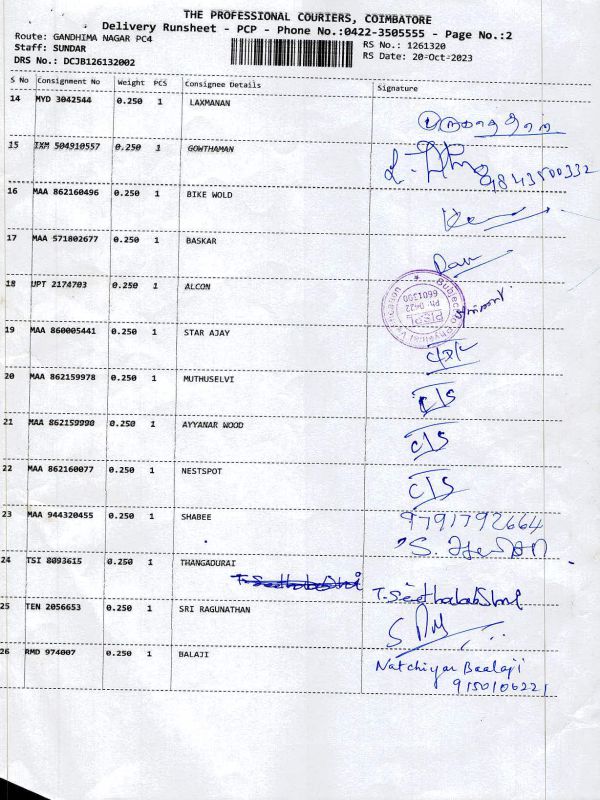 THE PROFESSIONAL COURIERS, COIMBATORE
Delivery Runsheet - PCP - Phone No.:0422-3505555 - Page No.:2
Route: GANDHIMA NAGAR PC4
RS No.: 1261320
Staff: SUNDAR
RS Date: 20-Oct-2023
DRS No.: DCJB126132002
S No Consignment No Weight PCS Consignee Details Signature
14 MYD 3042544 0.250 1 LAXMANAN
15 IXM 504910557 0.250 1 GOWTHAMAN
9843500332
16 MAA 862160496 0.250 1 BIKE WOLD
17 MAA 571802677 0.250 1 BASKAR
18 UPT 2174703 0.250 1 ALCON
19 MAA 860005441 0.250 1 STAR AJAY
20 MAA 862159978 0.250 1 MUTHUSELVI
C/S
21 MAA 862159990 0.250 1 AYYANAR WOOD
C/S
22 MAA 862160077 0.250 1 NESTSPOT
C/S
23 MAA 944320455 0.250 1 SHABEE
9791792664
24 TSI 8093615 0.250 1 THANGADURAI
T. Seethalakshmi
25 TEN 2056653 0.250 1 SRI RAGUNATHAN
26 RMD 974007 0.250 1 BALAJI
Natchiyar Baalaji
9150106221